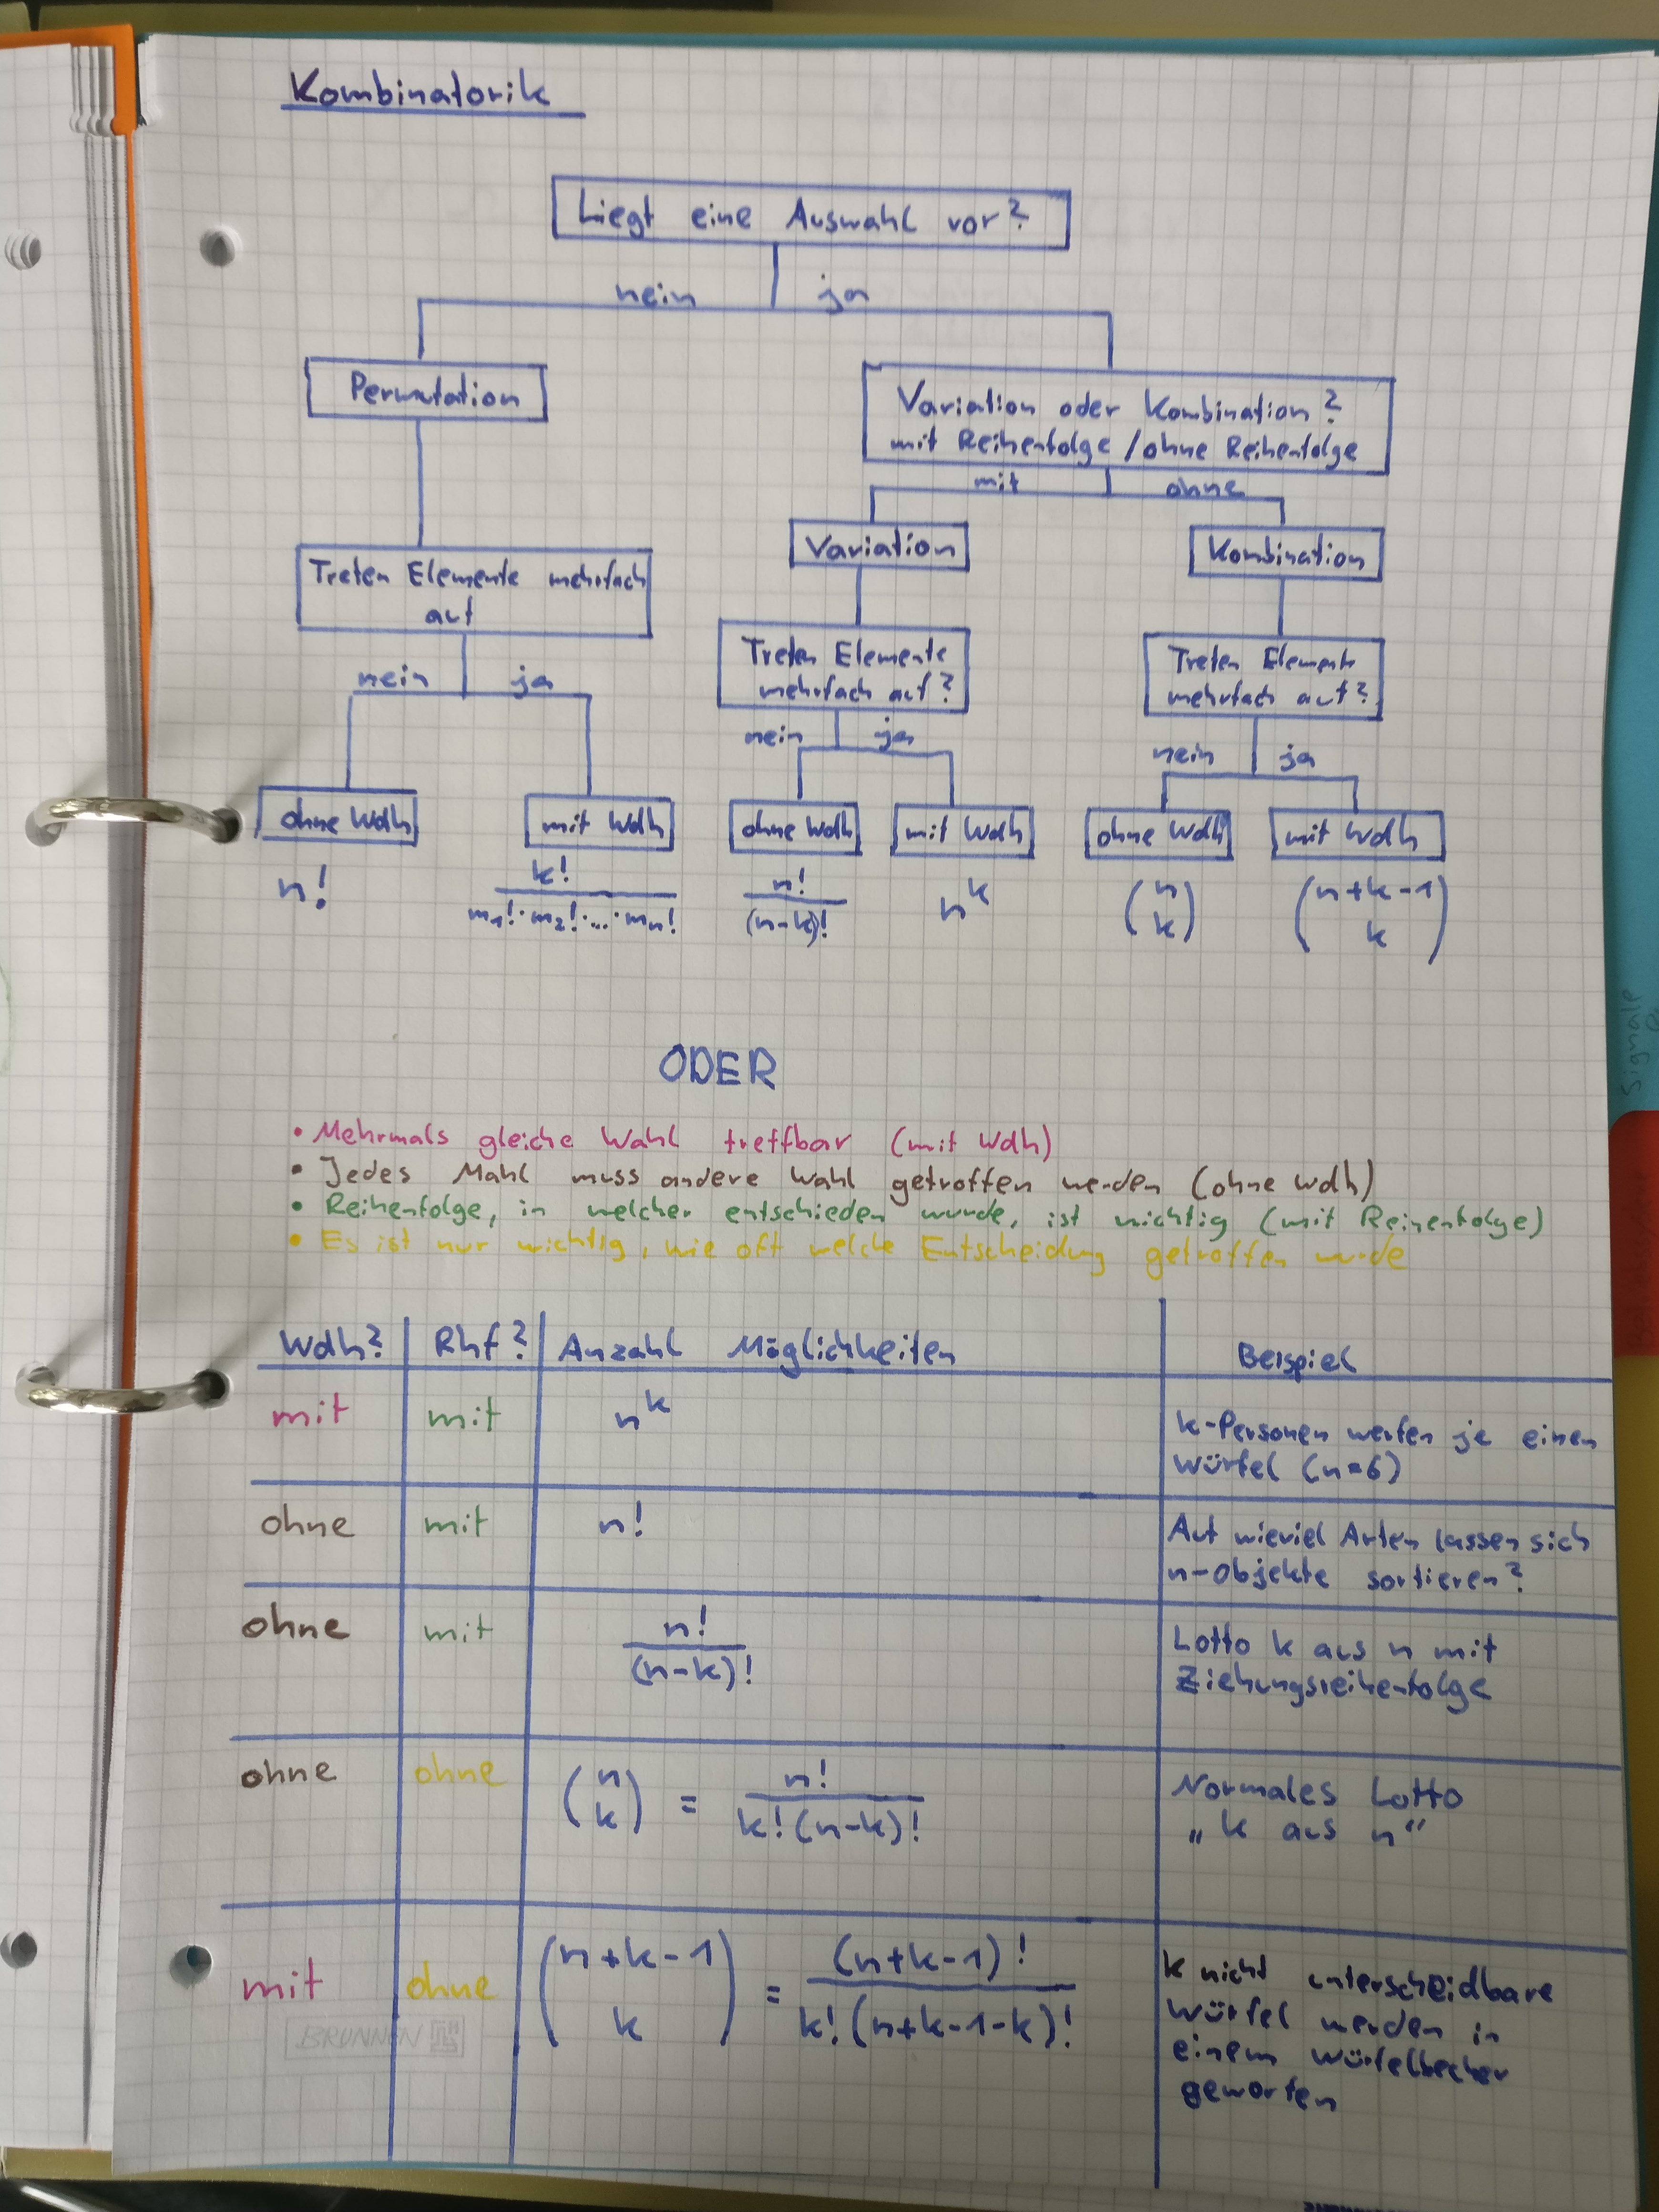 Kombinatorik
Liegt eine Auswahl vor?
nein ja
Permutation
Variation oder Kombination?
mit Reihenfolge / ohne Reihenfolge
mit ohne
Variation
Kombination
Treten Elemente mehrfach
auf
Treten Elemente
mehrfach auf?
Treten Elemente
mehrfach auf?
nein ja
nein ja
nein ja
ohne Wdh
mit Wdh
ohne Wdh
mit Wdh
ohne Wdh
mit Wdh
n!
k! / (m₁!·m₂!·...·mₙ!)
n! / (n-k)!
nᵏ
(n über k)
(n+k-1 über k)
ODER
• Mehrmals gleiche Wahl treffbar (mit Wdh)
• Jedes Mahl muss andere Wahl getroffen werden (ohne Wdh)
• Reihenfolge, in welcher entschieden wurde, ist wichtig (mit Reihenfolge)
• Es ist nur wichtig, wie oft welche Entscheidung getroffen wurde
Wdh? Rhf? Anzahl Möglichkeiten Beispiel
mit mit nᵏ
k-Personen werfen je einen
Würfel (n=6)
ohne mit n!
Auf wieviel Arten lassen sich
n-Objekte sortieren?
ohne mit n! / (n-k)!
Lotto k aus n mit
Ziehungsreihenfolge
ohne ohne (n über k) = n! / (k!(n-k)!)
Normales Lotto
„k aus n"
mit ohne (n+k-1 über k) = (n+k-1)! / (k!(n+k-1-k)!)
k nicht unterscheidbare
Würfel werden in
einem Würfelbecher
geworfen
BRUNNEN
Signale